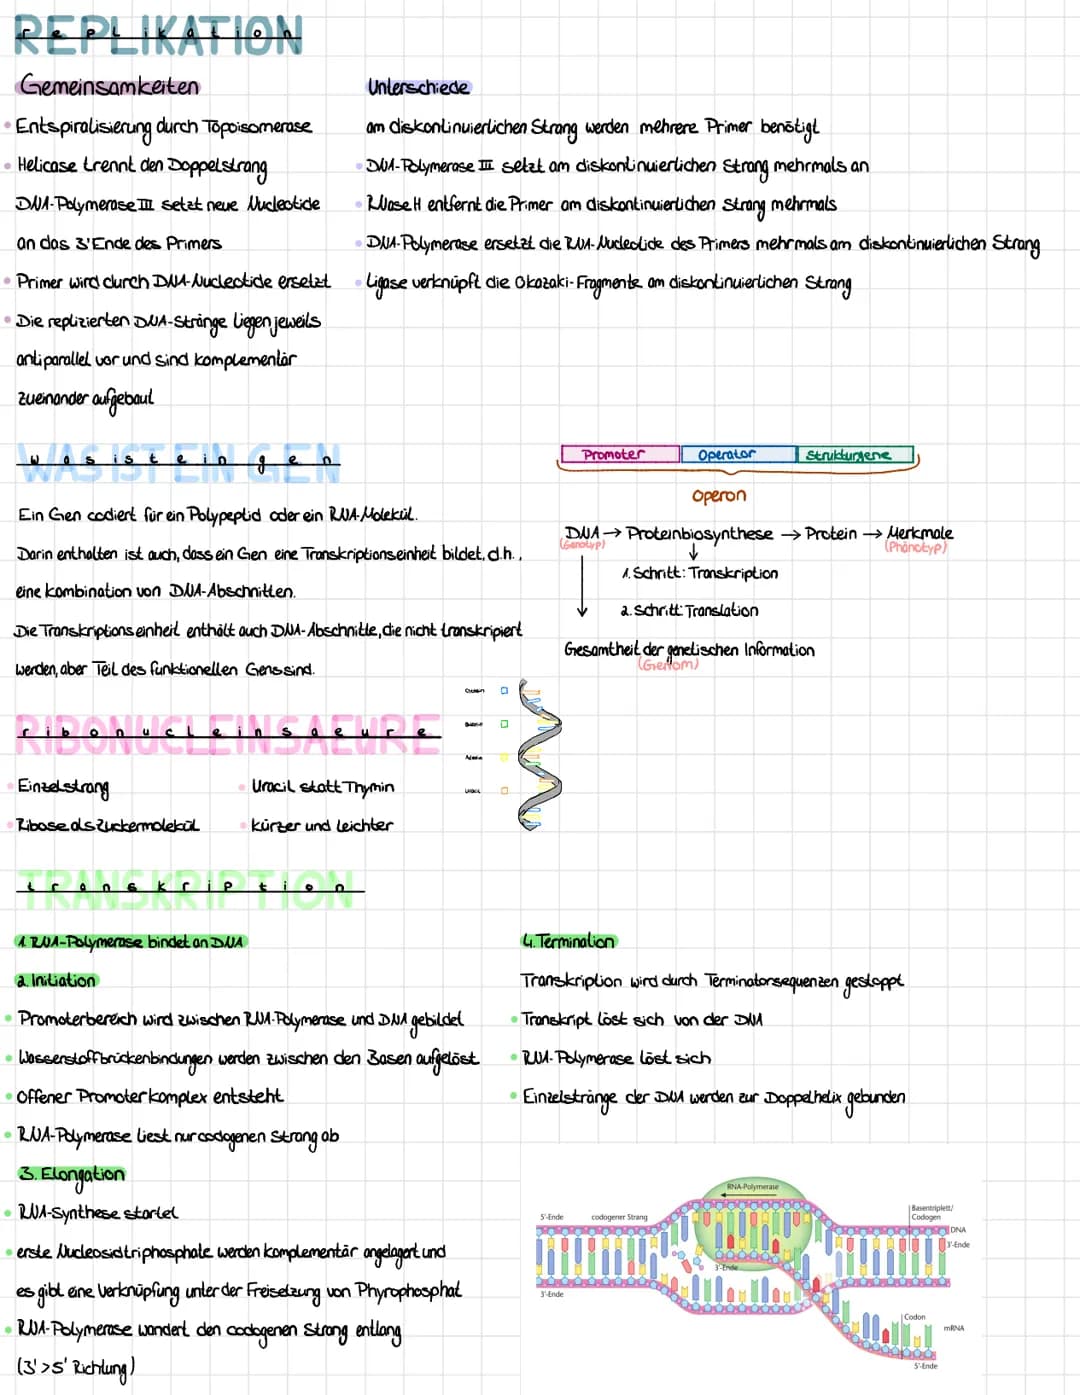 REPLIKATION
replikation
Gemeinsamkeiten
• Entspiralisierung durch Topoisomerase
• Helicase trennt den Doppelstrang
DNA-Polymerase III setzt neue Nucleotide
an das 3'Ende des Primers
• Primer wird durch DNA-Nucleotide ersetzt
• Die replizierten DNA-Stränge liegen jeweils
antiparallel vor und sind komplementär
zueinander aufgebaut
Unterschiede
am diskontinuierlichen Strang werden mehrere Primer benötigt
• DNA-Polymerase III setzt am diskontinuierlichen Strang mehrmals an
• RNase H entfernt die Primer am diskontinuierlichen Strang mehrmals
• DNA-Polymerase ersetzt die RNA-Nucleotide des Primers mehrmals am diskontinuierlichen Strang
• Ligase verknüpft die Okazaki-Fragmente am diskontinuierlichen Strang
WAS IST EIN GEN
was ist ein gen
Ein Gen codiert für ein Polypeptid oder ein RNA-Molekül.
Darin enthalten ist auch, dass ein Gen eine Transkriptionseinheit bildet, d.h.,
eine Kombination von DNA-Abschnitten.
Die Transkriptionseinheit enthält auch DNA-Abschnitte, die nicht transkripiert
werden, aber Teil des funktionellen Gens sind.
Promoter Operator Strukturgene
Operon
DNA → Proteinbiosynthese → Protein → Merkmale
(Genotyp) (Phänotyp)
1. Schritt: Transkription
2. Schritt: Translation
Gesamtheit der genetischen Information
(Genom)
RIBONUCLEINSAEURE
ribonucleinsaeure
• Einzelstrang
• Ribose als Zuckermolekül
• Uracil statt Thymin
• kürzer und leichter
Cytosin
Guanin
Adenin
Uracil
TRANSKRIPTION
transkription
1. RNA-Polymerase bindet an DNA
2. Initiation
• Promoterbereich wird zwischen RNA-Polymerase und DNA gebildet
• Wasserstoffbrückenbindungen werden zwischen den Basen aufgelöst
• Offener Promoterkomplex entsteht
• RNA-Polymerase liest nur codogenen Strang ab
3. Elongation
• RNA-Synthese startet
• erste Nucleosidtriphosphate werden komplementär angelagert und
es gibt eine Verknüpfung unter der Freisetzung von Phyrophosphat
• RNA-Polymerase wandert den codogenen Strang entlang
(3'>5' Richtung)
4. Termination
Transkription wird durch Terminatorsequenzen gestoppt
• Transkript löst sich von der DNA
• RNA-Polymerase löst sich
• Einzelstränge der DNA werden zur Doppelhelix gebunden
RNA-Polymerase
5'-Ende
codogener Strang
Basentriplett/
Codogen
DNA
3'-Ende
3'-Ende
3'-Ende
Codon
mRNA
5'-Ende